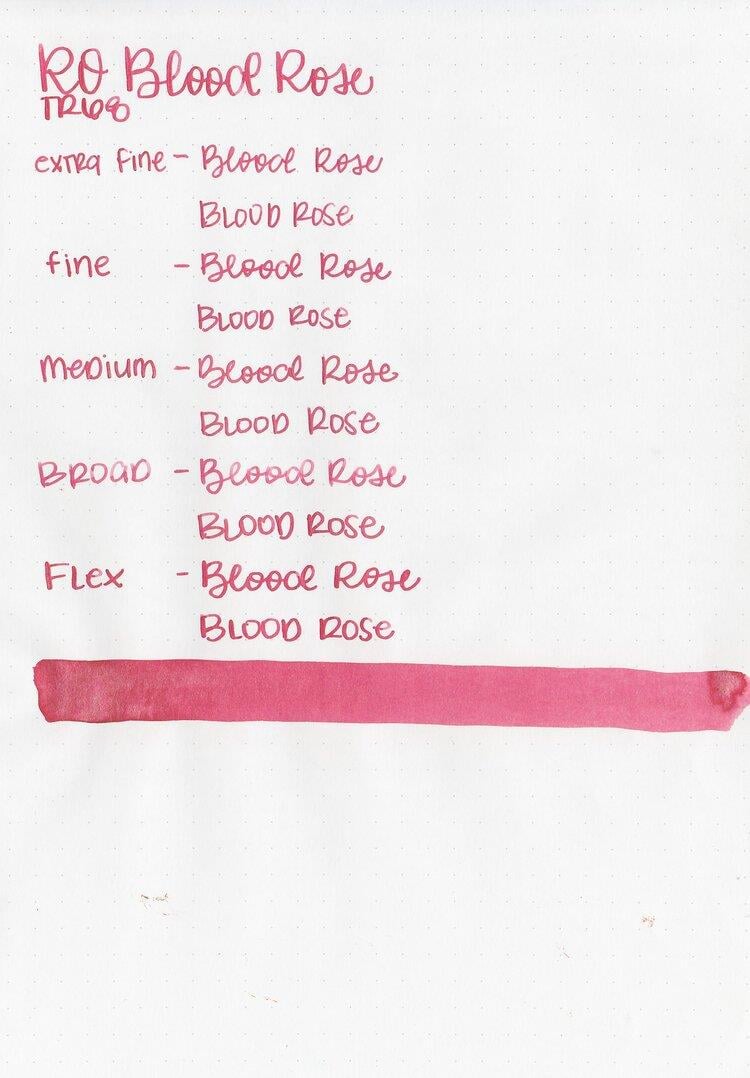 RO Blood Rose
TR68
extra fine - Blood Rose
BLOOD ROSE
fine - Blood Rose
BLOOD ROSE
medium - Blood Rose
BLOOD ROSE
BROAD - Blood Rose
BLOOD ROSE
Flex - Blood Rose
BLOOD ROSE